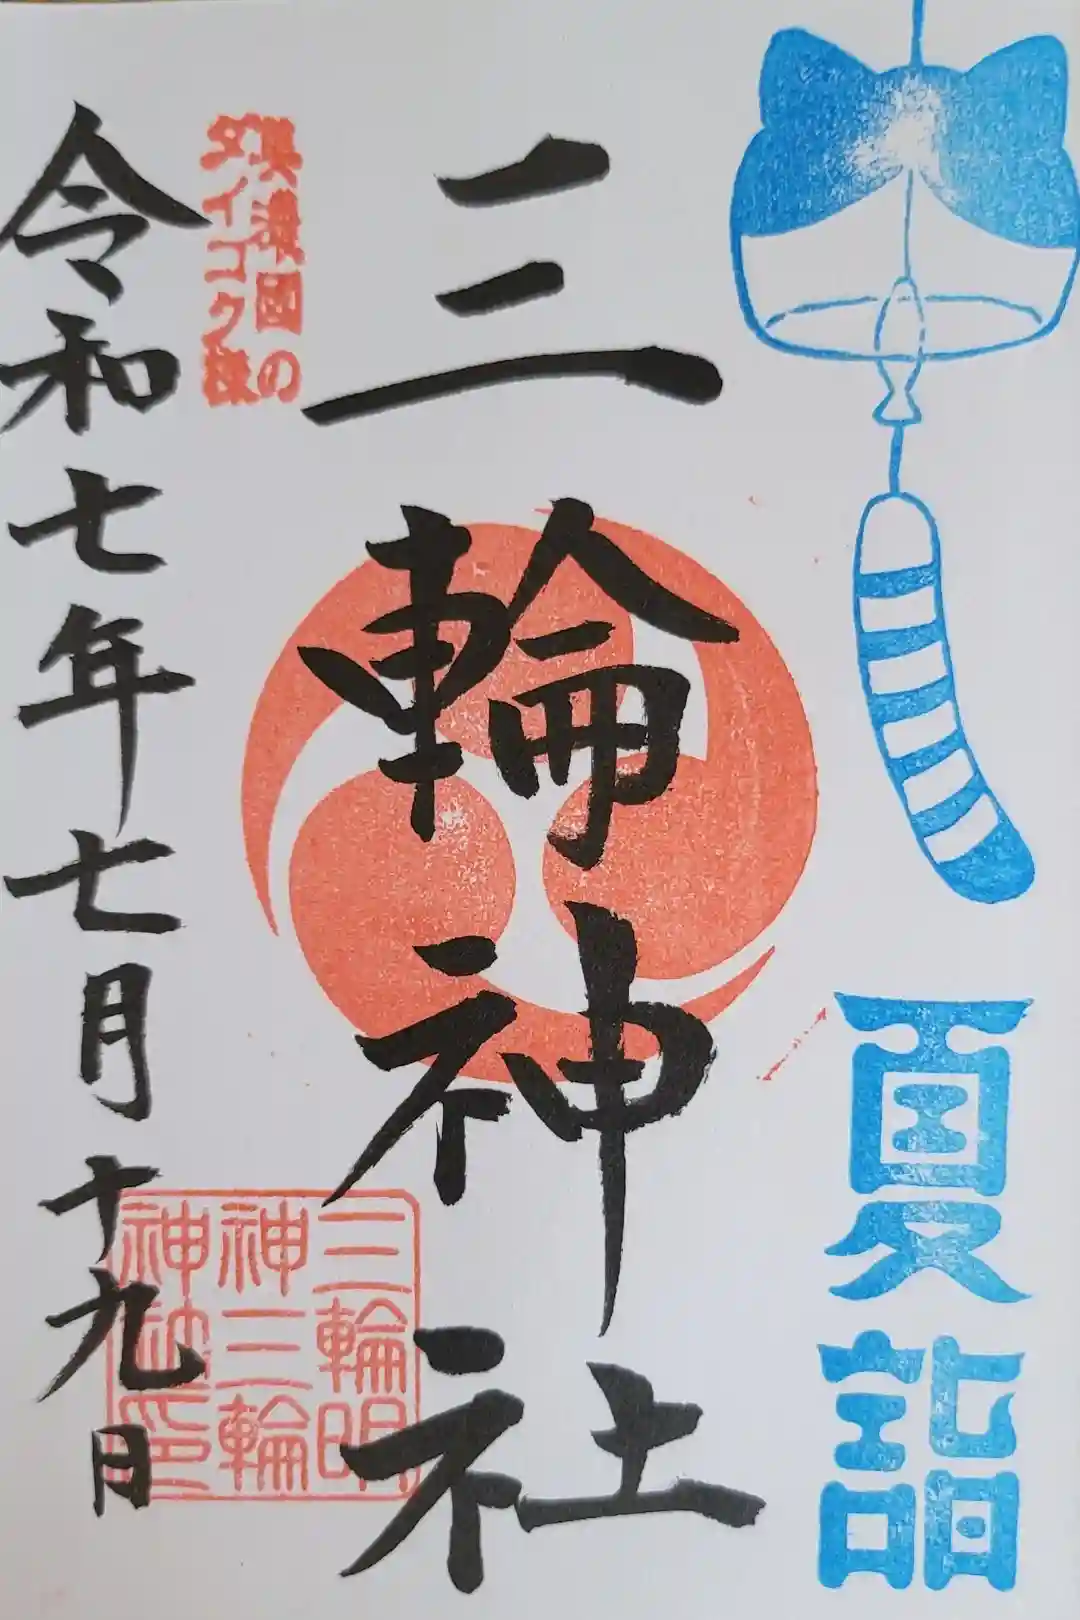 夏詣
三輪神社
三輪明
神三輪
神社印
美濃國の
ダイコク様
令和七年七月十九日